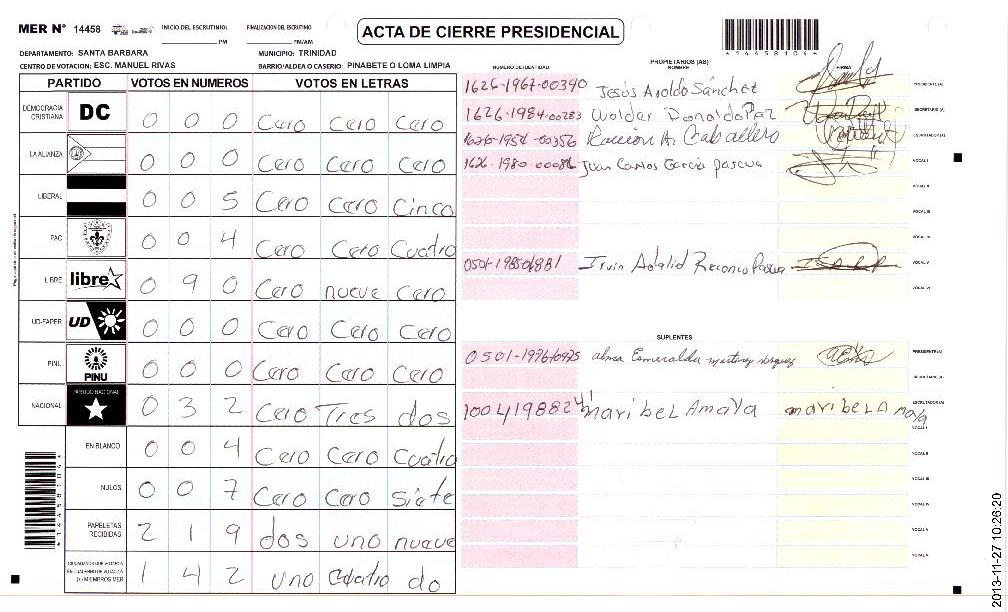 MER N° 14458
INICIO DEL ESCRUTINIO: PM
FINALIZACION DEL ESCRUTINIO PM/AM
ACTA DE CIERRE PRESIDENCIAL
*1445810*
DEPARTAMENTO: SANTA BARBARA
MUNICIPIO: TRINIDAD
CENTRO DE VOTACION: ESC. MANUEL RIVAS
BARRIO/ALDEA O CASERIO: PINABETE O LOMA LIMPIA
PARTIDO VOTOS EN NUMEROS VOTOS EN LETRAS
DEMOCRACIA CRISTIANA DC 0 0 0 Cero Cero Cero
LA ALIANZA 0 0 0 Cero Cero Cero
LIBERAL 0 0 5 Cero Cero Cinco
PAC 0 0 4 Cero Cero Cuatro
LIBRE libre 0 9 0 Cero nueve Cero
UD-FAPER UD 0 0 0 Cero Cero Cero
PINU PINU 0 0 0 Cero Cero Cero
NACIONAL PARTIDO NACIONAL 0 3 2 Cero Tres dos
EN BLANCO 0 0 4 Cero Cero Cuatro
NULOS 0 0 7 Cero Cero Siete
PAPELETAS RECIBIDAS 2 1 9 dos uno nueve
CIUDADANOS QUE VOTARON EN CUADERNO DE VOTACION (+) MIEMBROS MER 1 4 2 uno Cuatro do
PROPIETARIOS (AS)
NUMERO DE IDENTIDAD NOMBRE FIRMA
1626-1967-00390 Jesús Aroldo Sánchez PRESIDENTE (A)
1626-1984-00283 Woldar Donaldo Paz SECRETARIO (A)
1626-1954-00356 Ramon A. Caballero ESCRUTADOR (A)
1626-1980-00086 Juan Carlos Garcia pascua VOCAL I
VOCAL II
VOCAL III
VOCAL IV
0501-198506881 Irvin Adalid Reconco Pascua VOCAL V
VOCAL VI
SUPLENTES
0501-1976-10975 alma Esmeralda PRESIDENTE (A)
SECRETARIO (A)
1004198824 maribel Amaya maribel Amaya ESCRUTADOR (A)
VOCAL I
VOCAL II
VOCAL III
VOCAL IV
VOCAL V
VOCAL VI
2013-11-27 10:26:20